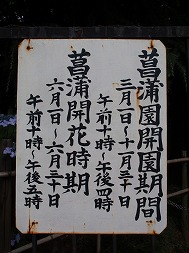 菖蒲園開園期間
三月一日~十一月三十日
午前十時~午後四時
菖蒲開花時期
六月一日~六月三十日
午前十時~午後五時